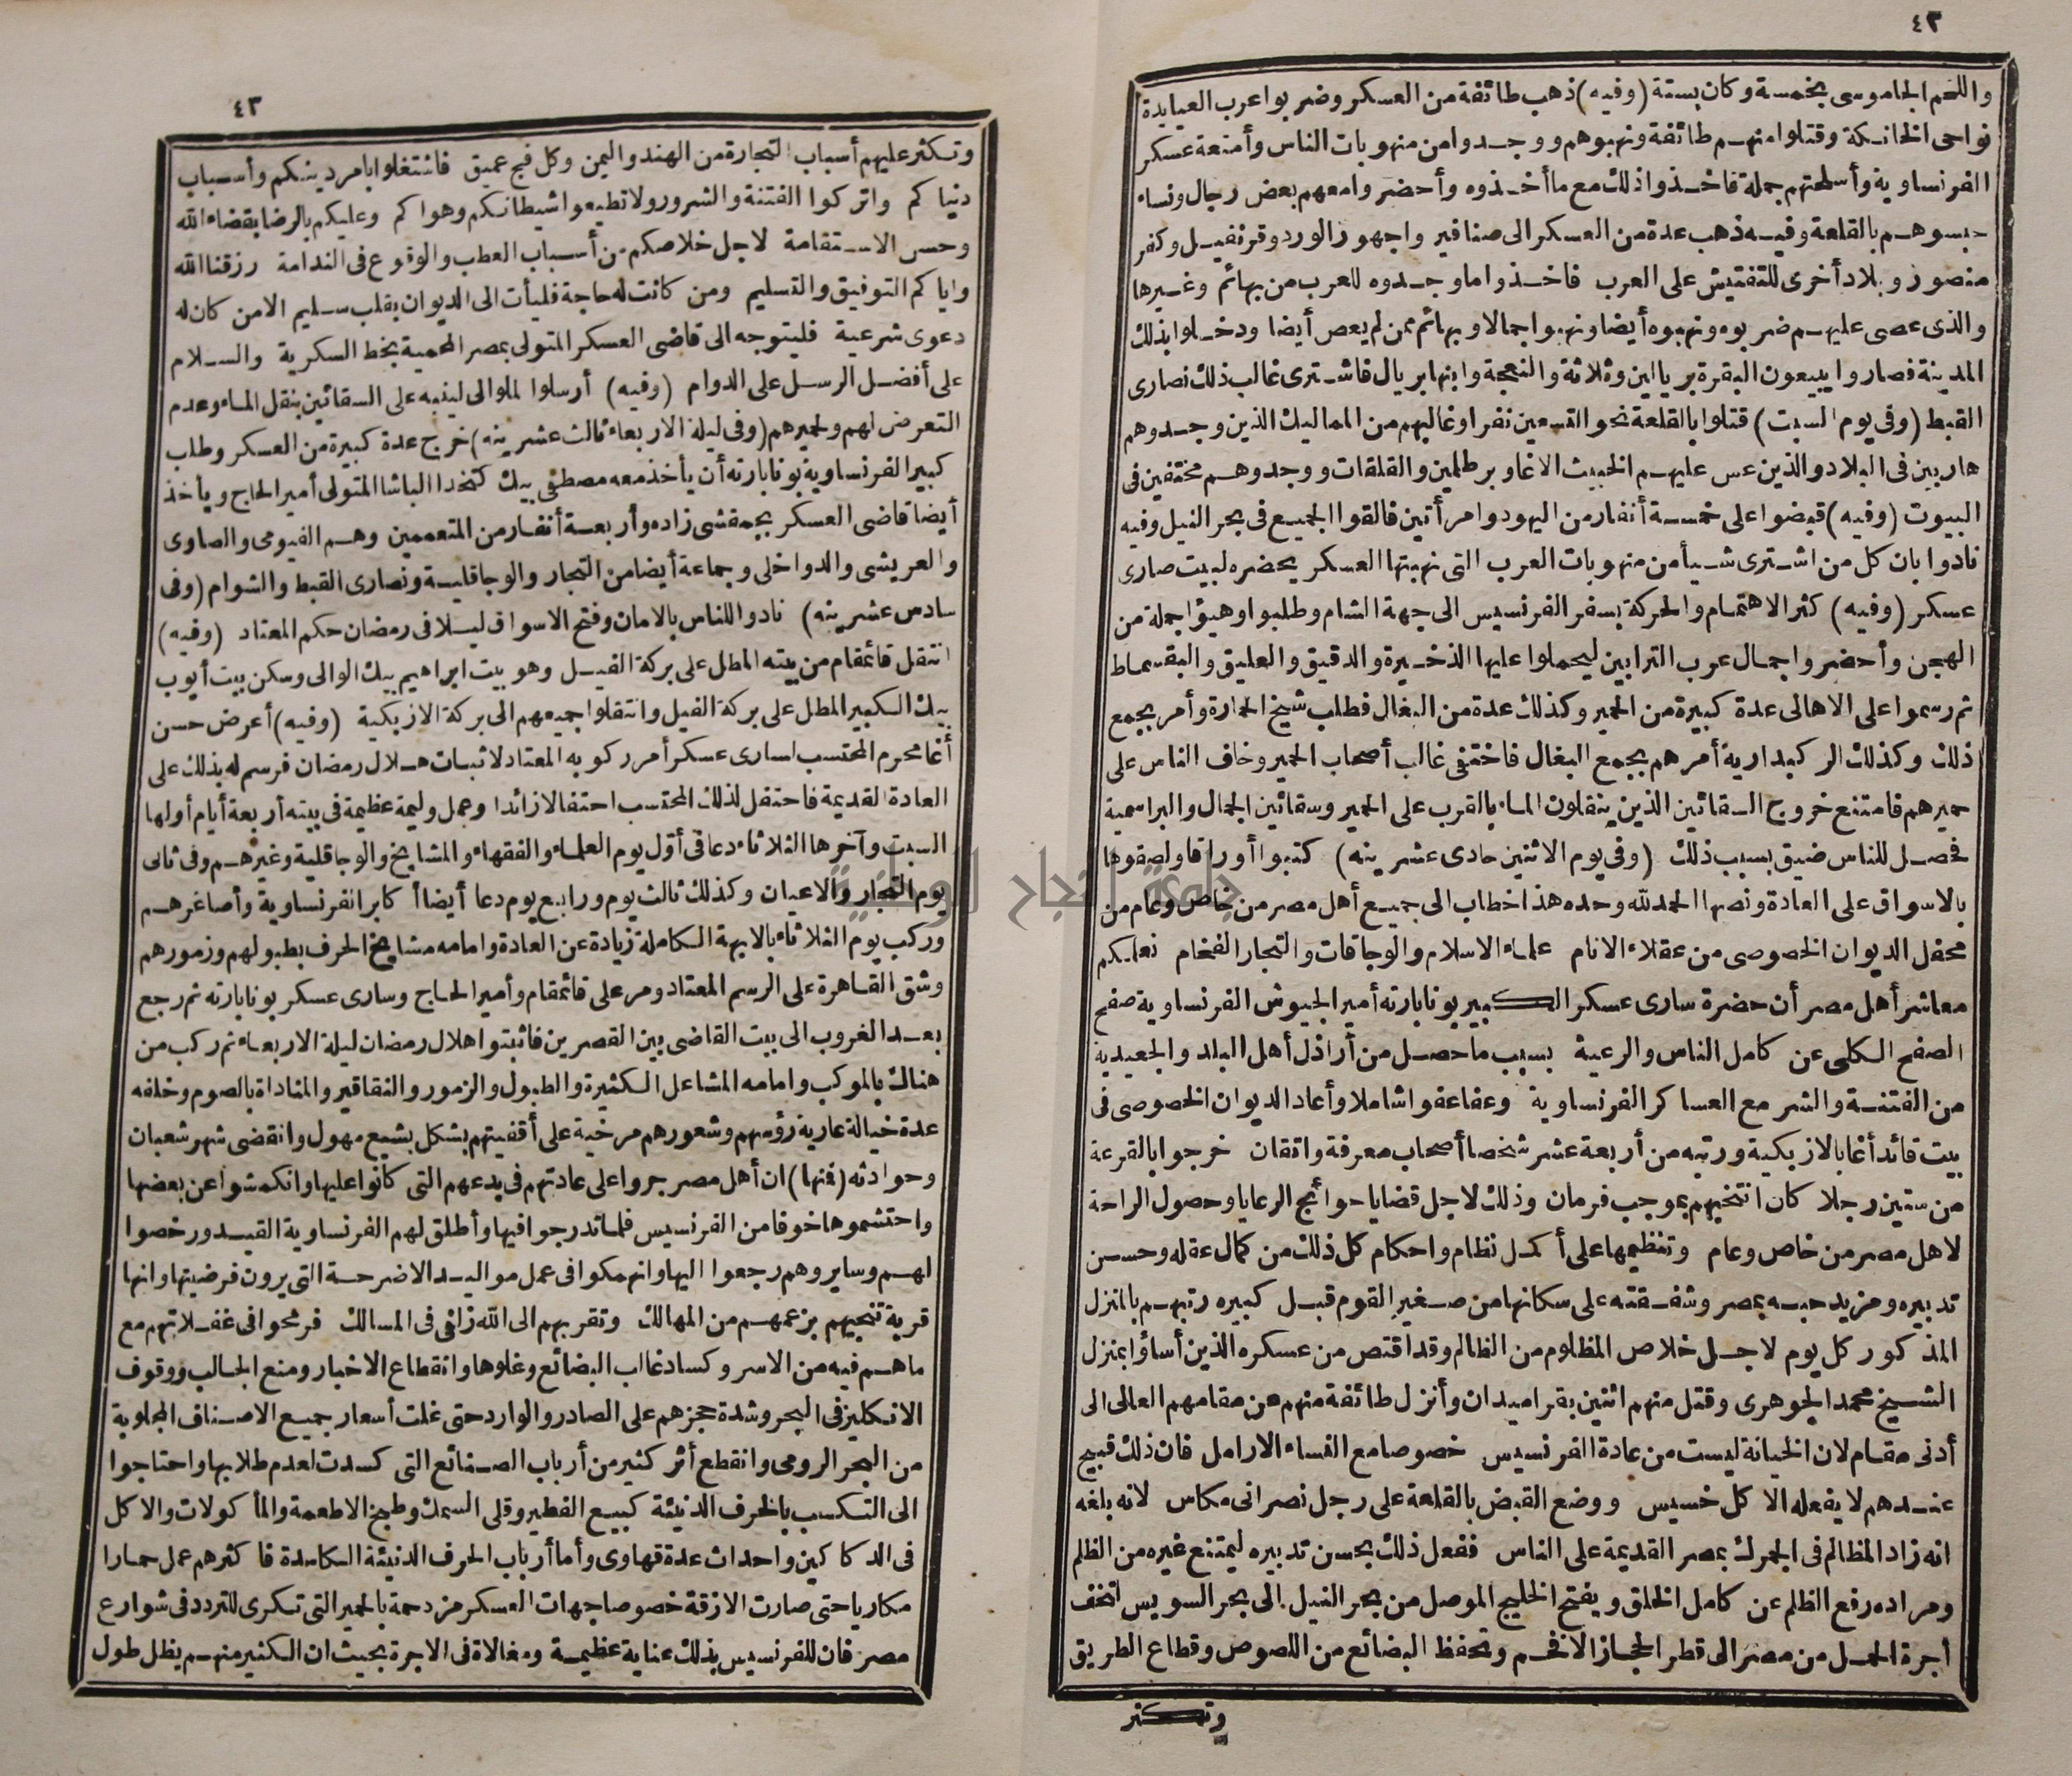 ٤٢
واللحم الجاموسى بخمسة وكان بستة (وفيه) ذهب طائفة من العسكر وضربوا عرب العيايدة
نواحى الخانكة وقتلوا منهم طائفة ونهبوهم ووجدوا من منهوبات الناس وأمتعة عسكر
الفرنساوية وأسلحتهم جملة فاخذوا ذلك مع ما أخذوه وأحضروا معهم بعض رجال ونساء
حبسوهم بالقلعة وفيه ذهب عدة من العسكر الى صنافير واجهور الورد وقرنفيل وكفر
منصور وبلاد أخرى للتفتيش على العرب فاخذوا ما وجدوه للعرب من بهائم وغيرها
والذى عصى عليهم ضربوه ونهبوه أيضا ونهبوا جمالا وبهائم ممن لم يعص أيضا ودخلوا بذلك
المدينة فصاروا يبيعون البقرة بريالين وثلاثة والنعجة وابنها بريال فاشترى غالب ذلك نصارى
القبط (وفى يوم السبت) قتلوا بالقلعة نحو التسعين نفرا وغالبهم من المماليك الذين وجدوهم
هاربين فى البلاد والذين عس عليهم الخبيث الاغا وبرطلمين والقلقات ووجدوهم مختفين فى
البيوت (وفيه) قبضوا على خمسة أنفار من اليهود وامرأتين فالقوا الجميع فى بحر النيل وفيه
نادوا بان كل من اشترى شيأ من منهوبات العرب التى نهبتها العسكر يحضره لبيت صارى
عسكر (وفيه) كثر الاهتمام والحركة بسفر الفرنسيس الى جهة الشام وطلبوا وهيؤا جملة من
الهجن وأحضروا جمال عرب الترابين ليحملوا عليها الذخيرة والدقيق والعليق والبقسماط
ثم رسموا على الاهالى عدة كبيرة من الحمير وكذلك عدة من البغال فطلب شيخ الحمارة وأمر بجمع
ذلك وكذلك الركبدارية أمرهم بجمع البغال فاختفى غالب أصحاب الحمير وخاف الناس على
حميرهم فامتنع خروج السقائين الذين ينقلون الماء بالقرب على الحمير وسقائين الجمال والبراسمية
فحصل للناس ضيق بسبب ذلك (وفى يوم الاثنين حادى عشرينه) كتبوا أوراقا ولصقوها
بالاسواق على العادة ونصها الحمد لله وحده هذا خطاب الى جميع أهل مصر من خاص وعام من
محفل الديوان الخصوصى من عقلاء الانام علماء الاسلام والوجاقات والتجار الفخام نعلمكم
معاشر أهل مصر أن حضرة سارى عسكر الكبير بونابارته أمير الجيوش الفرنساوية صفح
الصفح الكلى عن كامل الناس والرعية بسبب ما حصل من أراذل أهل البلد والجعيدية
من الفتنة والشر مع العساكر الفرنساوية وعفا عفوا شاملا وأعاد الديوان الخصوصى فى
بيت قائد أغا بالازبكية ورتبه من أربعة عشر شخصا أصحاب معرفة واتقان خرجوا بالقرعة
من ستين رجلا كان انتخبهم بموجب فرمان وذلك لاجل قضايا حوائج الرعايا وحصول الراحة
لاهل مصر من خاص وعام وتنظيمها على أكمل نظام واحكام كل ذلك من كمال عقله وحسن
تدبيره ومزيد حبه بمصر وشفقته على سكانها من صغير القوم قبل كبيره رتبهم بالمنزل
المذكور كل يوم لاجل خلاص المظلوم من الظالم وقد اقتص من عسكره الذين أساؤا بمنزل
الشيخ محمد الجوهرى وقتل منهم اثنين بقراميدان وأنزل طائفة منهم عن مقامهم العالى الى
أدنى مقام لان الخيانة ليست من عادة الفرنسيس خصوصا مع النساء الارامل فان ذلك قبيح
عندهم لا يفعله الا كل خسيس ووضع القبض بالقلعة على رجل نصرانى مكاس لانه بلغه
انه زاد المظالم فى الجمرك بمصر القديمة على الناس ففعل ذلك بحسن تدبيره ليمتنع غيره من الظلم
ومراده رفع الظلم عن كامل الخلق ويفتح الخليج الموصل من بحر النيل الى بحر السويس لتخف
أجرة الحمل من مصر الى قطر الحجاز الافخم وتحفظ البضائع من اللصوص وقطاع الطريق
وتكثر
٤٣
وتكثر عليهم أسباب التجارة من الهند واليمن وكل فج عميق فاشتغلوا بامر دينكم وأسباب
دنياكم واتركوا الفتنة والشرور ولا تطيعوا شيطانكم وهواكم وعليكم بالرضا بقضاء الله
وحسن الاستقامة لاجل خلاصكم من أسباب العطب والوقوع فى الندامة رزقنا الله
واياكم التوفيق والتسليم ومن كانت له حاجة فليأت الى الديوان بقلب سليم الا من كان له
دعوى شرعية فليتوجه الى قاضى العسكر المتولى بمصر المحمية بخط السكرية والسلام
على أفضل الرسل على الدوام (وفيه) أرسلوا للوالى لينبه على السقائين بنقل الماء وعدم
التعرض لهم ولحميرهم (وفى ليلة الاربعاء ثالث عشرينه) خرج عدة كبيرة من العسكر وطلب
كبير الفرنساوية بونابارته أن يأخذ معه مصطفى بيك كتخدا الباشا المتولى أمير الحاج ويأخذ
أيضا قاضى العسكر بجمقشى زاده وأربعة أنفار من المتعممين وهم الفيومى والصاوى
والعريشى والدواخلى وجماعة أيضا من التجار والوجاقلية ونصارى القبط والشوام (وفى
سادس عشرينه) نادوا للناس بالامان وفتح الاسواق ليلا فى رمضان حكم المعتاد (وفيه)
انتقل قائمقام من بيته المطل على بركة الفيل وهو بيت ابراهيم بيك الوالى وسكن بيت أيوب
بيك الكبير المطل على بركة الفيل وانتقلوا جميعهم الى بركة الازبكية (وفيه) أعرض حسن
أغا محرم المحتسب لسارى عسكر أمر ركوبه المعتاد لاثبات هلال رمضان فرسم له بذلك على
العادة القديمة فاحتفل لذلك المحتسب احتفالا زائدا وعمل وليمة عظيمة فى بيته أربعة أيام أولها
السبت وآخرها الثلاثاء دعا فى أول يوم العلماء والفقهاء والمشايخ والوجاقلية وغيرهم وفى ثانى
يوم التجار والاعيان وكذلك ثالث يوم ورابع يوم دعا أيضا أكابر الفرنساوية وأصاغرهم
وركب يوم الثلاثاء بالابهة الكاملة زيادة عن العادة وامامه مشايخ الحرف بطبولهم وزمورهم
وشق القاهرة على الرسم المعتاد ومر على قائمقام وأمير الحاج وسارى عسكر بونابارته ثم رجع
بعد الغروب الى بيت القاضى بين القصرين فاثبتوا هلال رمضان ليلة الاربعاء ثم ركب من
هناك بالموكب وامامه المشاعل الكثيرة والطبول والزمور والنقاقير والمناداة بالصوم وخلفه
عدة خيالة عارية رؤسهم وشعورهم مرخية على أقفيتهم بشكل بشيع مهول وانقضى شهر شعبان
وحوادثه (فمنها) ان أهل مصر جروا على عادتهم فى بدعهم التى كانوا عليها وانكمشوا عن بعضها
واحتشموها خوفا من الفرنسيس فلما تدرجوا فيها وأطلق لهم الفرنساوية القيد ورخصوا
لهم وسايروهم رجعوا اليها وانهمكوا فى عمل مواليد الاضرحة التى يرون فرضيتها وانها
قربة تنجيهم بزعمهم من المهالك وتقربهم الى الله زلفى فى المسالك فرمحوا فى غفلاتهم مع
ما هم فيه من الاسر وكساد غالب البضائع وغلوها وانقطاع الاخبار ومنع الجالب ووقوف
الانكليز فى البحر وشدة حجزهم على الصادر والوارد حتى غلت أسعار جميع الاصناف المجلوبة
من البحر الرومى وانقطع أثر كثير من أرباب الصنائع التى كسدت لعدم طلابها واحتاجوا
الى التكسب بالحرف الدنيئة كبيع الفطير وقلى السمك وطبخ الاطعمة والمأكولات والاكل
فى الدكاكين واحداث عدة قهاوى وأما أرباب الحرف الدنيئة الكاسدة فاكثرهم عمل حمارا
مكاريا حتى صارت الازقة خصوصا جهات العسكر مزدحمة بالحمير التى تكرى للتردد فى شوارع
مصر فان للفرنسيس بذلك عناية عظيمة ومغالاة فى الاجرة بحيث ان الكثير منهم يظل طول
جامعة النجاح الوطنية